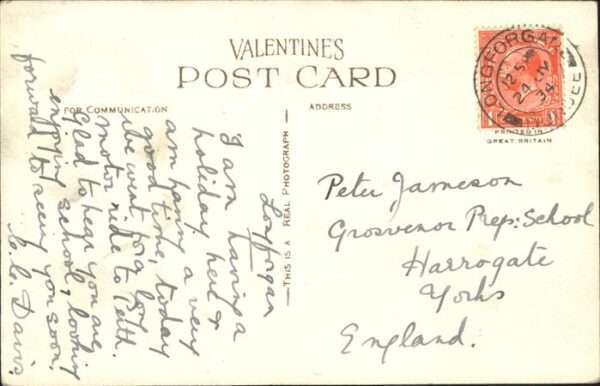 VALENTINES
POST CARD
FOR COMMUNICATION
ADDRESS
Longforgan
I am having a
holiday here &
am having a very
good time, today
we went for a long
motor ride to Perth.
Glad to hear you are
enjoying school, looking
forward to seeing you soon.
Davis.
THIS IS A REAL PHOTOGRAPH
LONGFORGAN
DUNDEE
24
34
PRINTED IN
GREAT BRITAIN
Peter Jameson
Grosvenor Prep: School
Harrogate
Yorks
England.